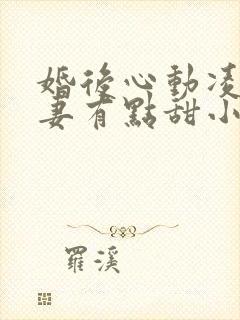 婚後心動凌
妻有點甜小
羅溪